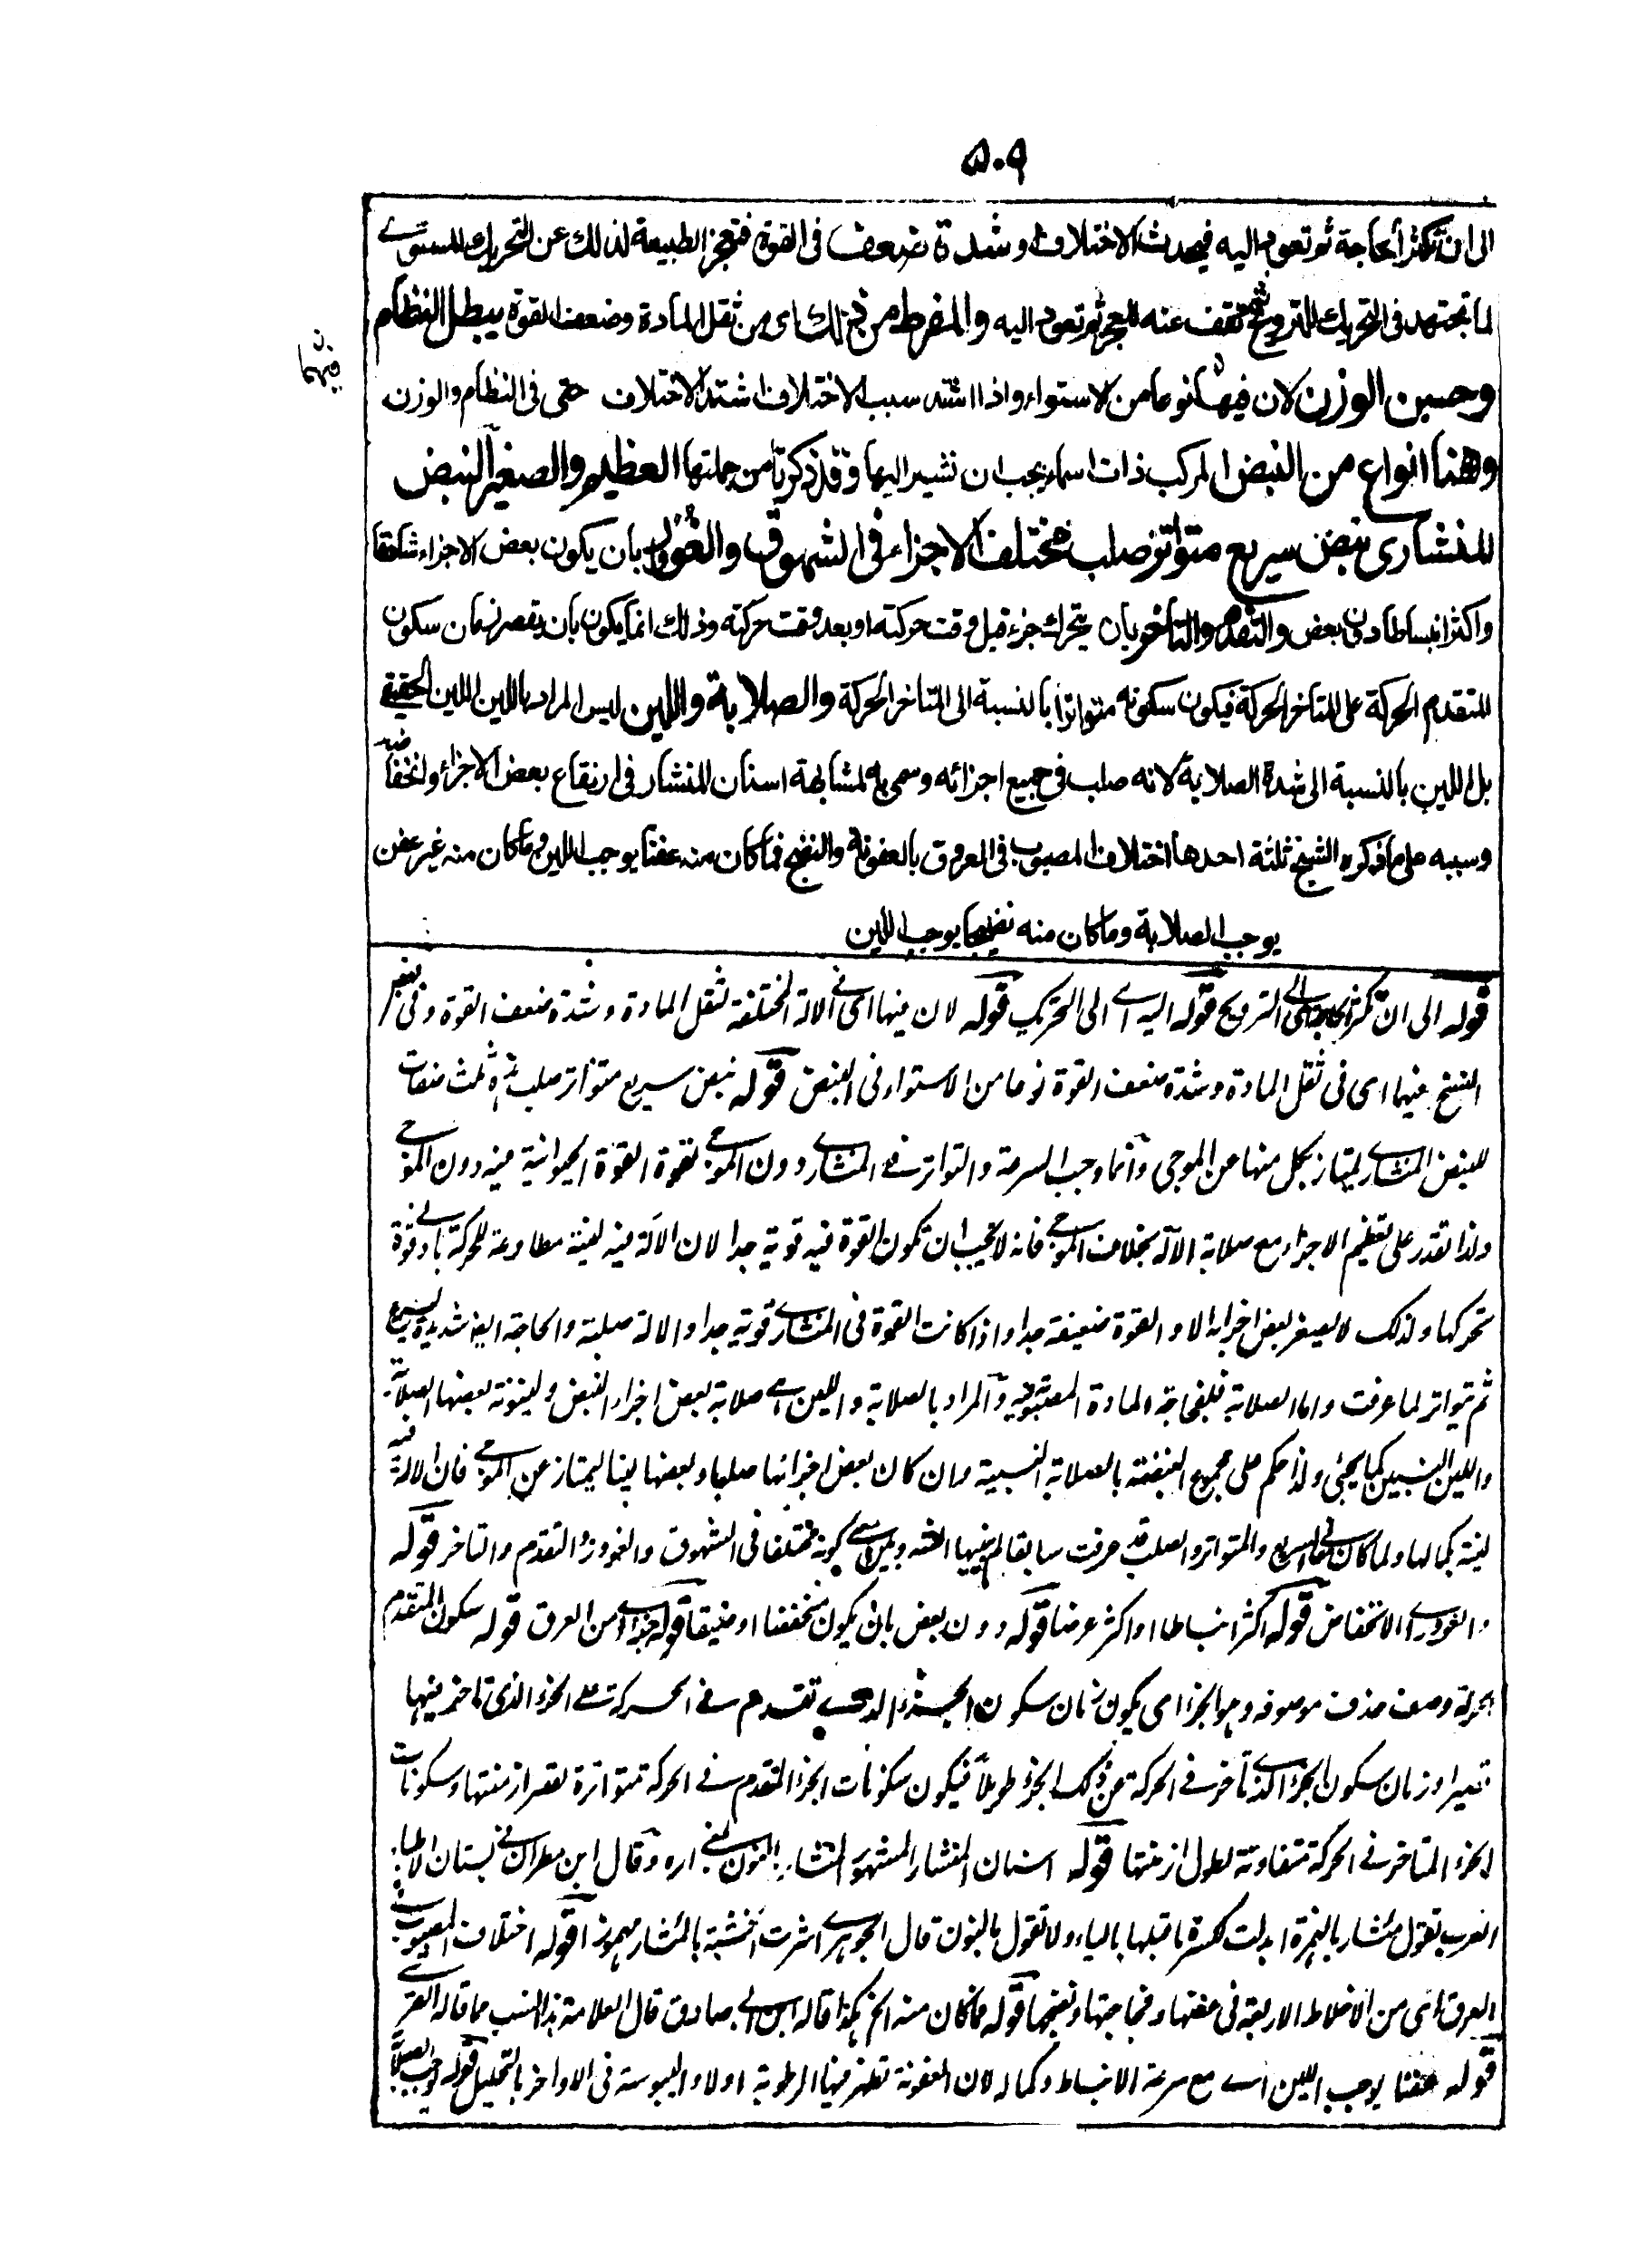 ۵۰۹
الى ان تكثر الحاجة ثم تعود اليه فيحدث الاختلاف او شدة ضعف فى القوة فتعجز الطبيعة لذلك عن التحريك المستوى
لما تجتهد فى التحريك للترويح ثم تقف عنه للعجز ثم تعود اليه والمفرط من ذلك اى من ثقل المادة وضعف القوة يبطل النظام
وحسن الوزن لان فيهما نوعا من الاستواء واذا اشتد سبب الاختلاف اشتد الاختلاف حتى فى النظام والوزن
وهنا انواع من النبض المركب ذات اسماء يجب ان نشير اليها وقد ذكرنا من جملتها العظيم والصغير النبض
المنشارى نبض سريع متواتر صلب مختلف الاجزاء فى الشهوق والغؤر بان يكون بعض الاجزاء شاهقا
واكثر انبساطا دون بعض والتقدم والتاخر بان يتحرك جزء قبل وقت حركته او بعد وقت حركته وذلك انما يكون بان يقصر زمان سكون
المتقدم الحركة على المتاخر الحركة فيكون سكونه متواترا بالنسبة الى المتاخر الحركة والصلابة واللين ليس المراد باللين اللين الحقيقى
بل اللين بالنسبة الى شدة الصلابة لانه صلب فى جميع اجزائه وسمى به لمشابهة اسنان المنشار فى ارتفاع بعض الاجزاء وانخفاضه
وسببه على ما ذكره الشيخ ثلثة احدها اختلاف المصبوب فى العروق بالعفونة والنضج فما كان منه عفنا يوجب اللين وما كان منه غير عفن
يوجب الصلابة وما كان منه نضيجا يوجب اللين
قوله الى ان تكثر الحاجة اى الى الترويح قوله اليه اے الى التحريك قوله لان فيها اى فى الالة المختلفة لثقل المادة وشدة ضعف القوة وفى بعض
النسخ فيهما اى فى ثقل المادة وشدة ضعف القوة نوعا من الاستواء فى النبض قوله نبض سريع متواتر صلب هذه ثلث صفات
للنبض المنشارے ليمتاز بكل منها عن الموجى وانما وجب السرعة والتواتر فے المنشارے دون الموجے لقوة القوة الحيوانية فيه دون الموجے
ولذا تقدر على تعظيم الاجزاء مع صلابة الآلة بخلاف الموجے فانه لا يجب ان تكون القوة فيه قوية جدا لان الآلة فيه لينة مطاوعة للحركة بادنے قوة
تحركها ولذلك لا يصغر بعض اجزائه الا والقوة ضعيفة جدا واذا كانت القوة فى المنشارے قوية جدا والالة صلبة والحاجة ايضا شديدة ليسرع
ثم يتواتر لما عرفت واما الصلابة فلفجاجة المادة المصبوبة فيه والمراد بالصلابة واللين اے صلابة بعض اجزاء النبض ولينونة بعضها الصلابة
واللين النسبيين كما يجئى ولذا حكم على مجموع النبضة بالصلابة النسبية وان كان بعض اجزائها صلبا وبعضها لينا ليمتاز عن الموجے فان الالة فيه
لينة بكمالها ولما كان معنى السريع والمتواتر والصلب قد عرفت سابقا لم يبينها الشه وبين معے كونه مختلفا فى الشهوق والغؤر والتقدم والتاخر قوله
والغؤر اے الانخفاض قوله اكثر انبساطا او اكثر عرضا قوله دون بعض بان يكون منخفضا او ضيقا قوله جزء اے من العرق قوله سكون المتقدم
الحركة وصف حذف موصوفه وهو الجزء اى يكون زمان سكون الجزء الذے تقدم فے الحركة على الجزء الذى تاخر فيها
قصيرا وزمان سكون الجزء الذے تأخر فے الحركة من ذلك الجزء طويلا فيكون سكونات الجزء المتقدم فے الحركة متواترة لقصر ازمنتها وسكونات
الجزء المتاخر فے الحركة متفاوتة لطول ازمنتها قوله اسنان المنشار المشهور المنشار بالنون بمعنے اره وقال ابن مطران فے بستان الاطباء
العرب تقول مئشار بالهمزة ابدلت لكسرة ما قبلها بالياء ولا تقول بالنون قال الجوهرے اشرت الخشبة بالمئشار مهموز قوله اختلاف المصبوب فے
العرق اى من الاخلاط الاربعة فى عفنها وفجاجتها ونضجها قوله فما كان منه الخ هكذا قاله ابن ابى صادق قال العلامة هذا انسب مما قاله القرشے
قوله عفنا يوجب اللين اے مع سرعة الانبساط وكماله لان العفونة تظهر فيها الرطوبة اولا واليبوسة فى الاواخر بالتحليل قوله يوجب الصلابة